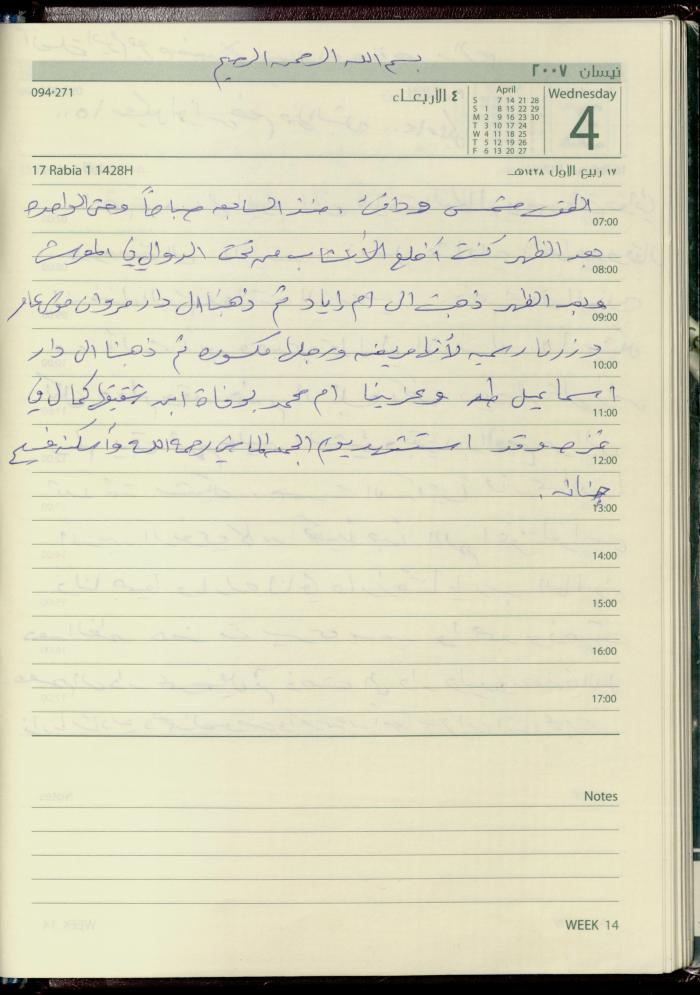 بسم الله الرحمن الرحيم
نيسان ٢٠٠٧
094-271
٤ الأربعاء
April
S 7 14 21 28
S 1 8 15 22 29
M 2 9 16 23 30
T 3 10 17 24
W 4 11 18 25
T 5 12 19 26
F 6 13 20 27
Wednesday
4
17 Rabia 1 1428H
١٧ ربيع الاول ١٤٢٨هـ
الطقس مشمس ودافئ. منذ السابعه صباحاً وحتى الواحده
07:00
بعد الظهر كنت أخلع الأعشاب من تحت الدوالي في
08:00
وبعد الظهر ذهبت الى ام اياد ثم ذهبنا الى دار مروان
09:00
وزرنا رسميه لأنها مريضه ورجلها مكسوره ثم ذهبنا الى دار
10:00
اسماعيل طه وعزينا ام محمد بوفاة ابن شقيقها كمال في
11:00
غزه وقد استشهد يوم الجمعه الماضي رحمه الله وأسكنه فسيح
12:00
جنانه.
13:00
14:00
15:00
16:00
17:00
Notes
WEEK 14